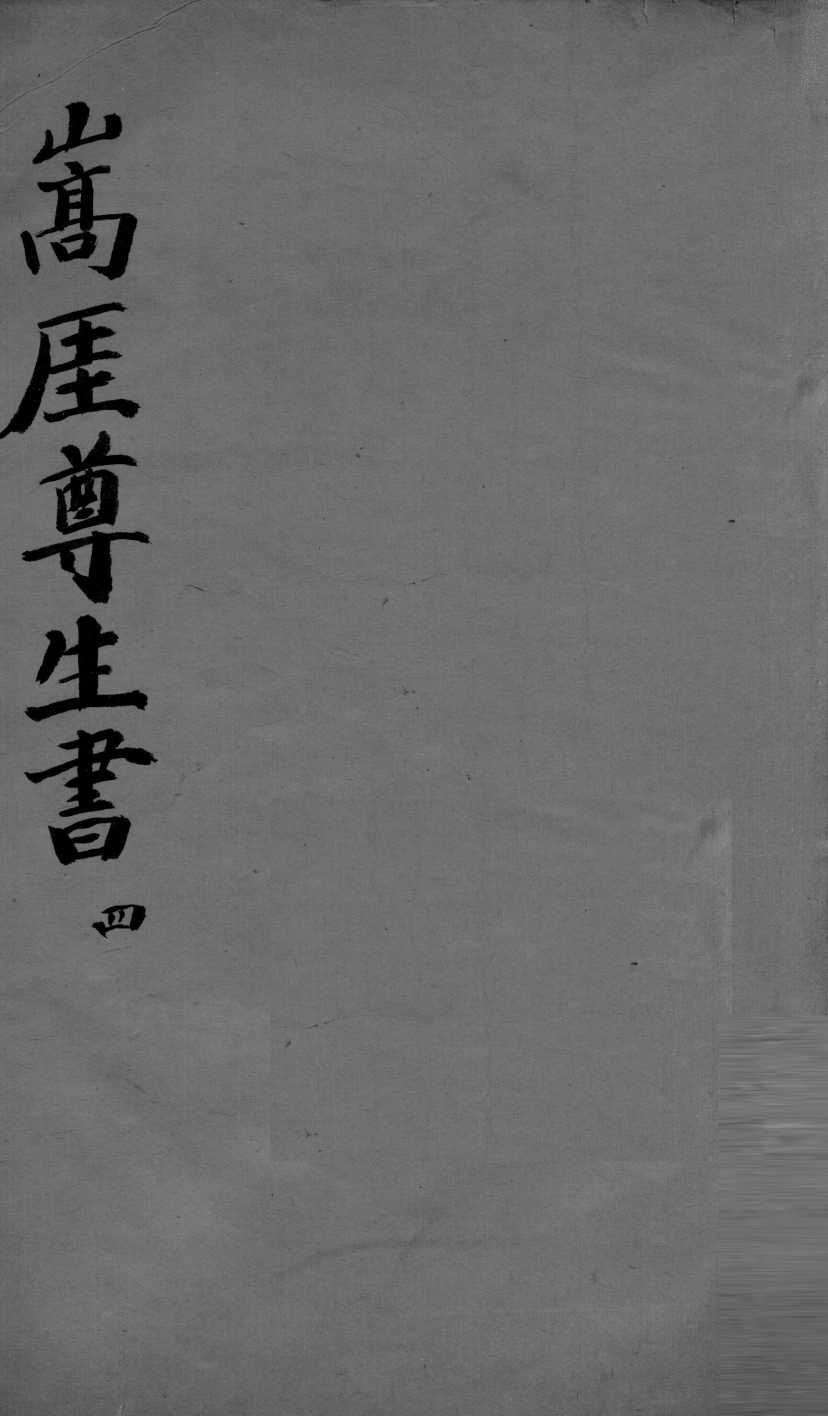 嵩厓尊生書 四